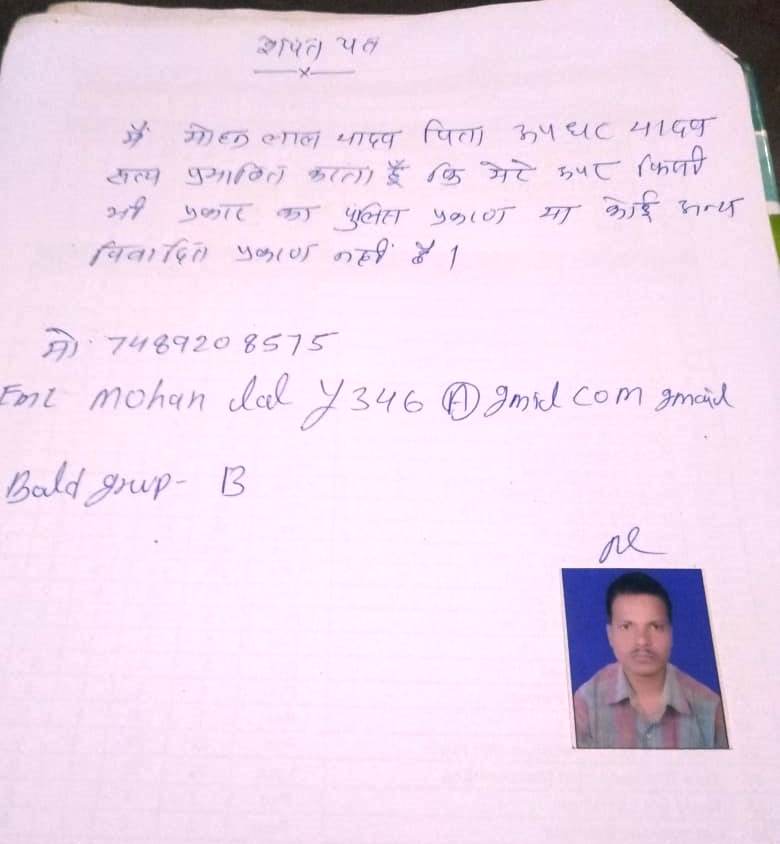 शपत पत्र
मैं मोहन लाल यादव पिता रूपधर यादव
सत्य प्रमाणित करता हूँ कि मेरे उपर किसी
भी प्रकार का पुलिस प्रकरण या कोई अन्य
विवादित प्रकरण नहीं है।
मो. 7489208575
Eml mohan lal y346 A gmid com gmaid
Bald grup- B